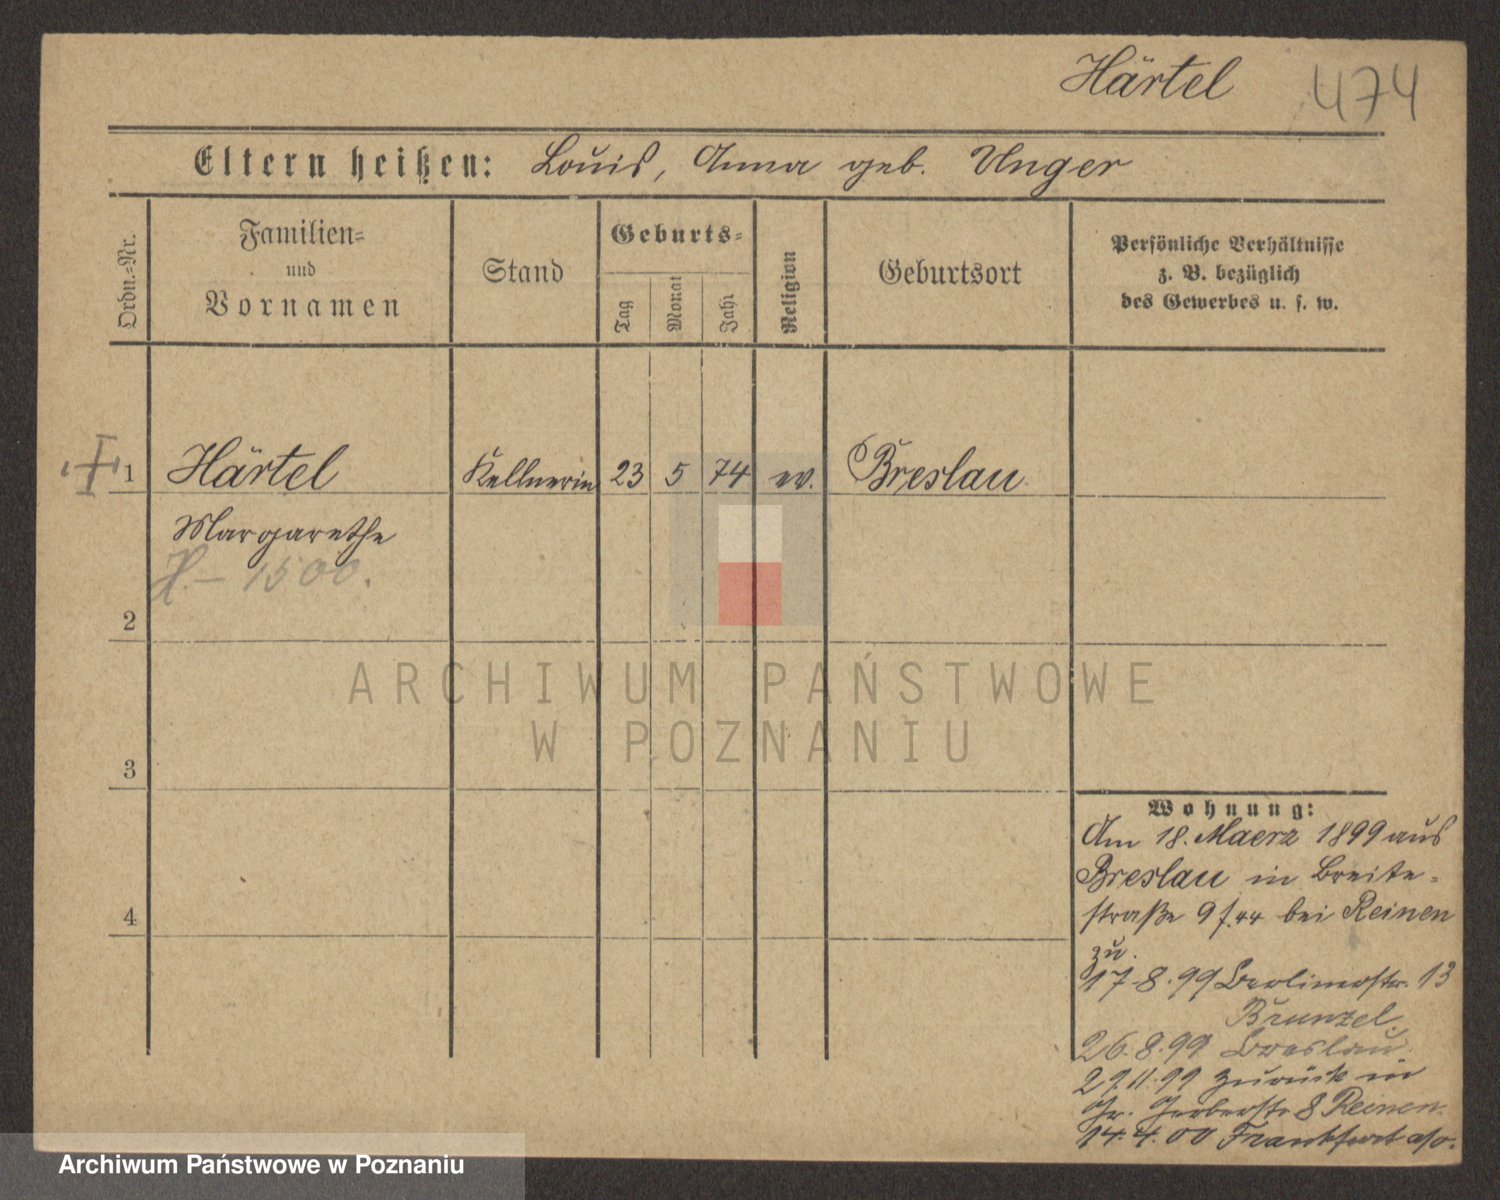 Härtel 474
Eltern heißen: Louis, Anna geb. Unger
Ordn.-Nr.
Familien-
und
Vornamen
Stand
Geburts-
Tag
Monat
Jahr
Religion
Geburtsort
Persönliche Verhältnisse
z. B. bezüglich
des Gewerbes u. s. w.
1 Härtel Kellnerin 23 5 74 ev. Breslau
Margarethe
H. - 1500.
2
3
4
Wohnung:
Am 18. Maerz 1899 aus
Breslau in Breite-
straße 9 bei Reinen
zu.
17.8.99 Berlinerstr. 13
Brunzel.
26.8.99 Breslau.
29.11.99 zurück in
Gr. Gerberstr 8 Reinen.
14.4.00 Frankfurt a/o.
ARCHIWUM PAŃSTWOWE
W POZNANIU
Archiwum Państwowe w Poznaniu